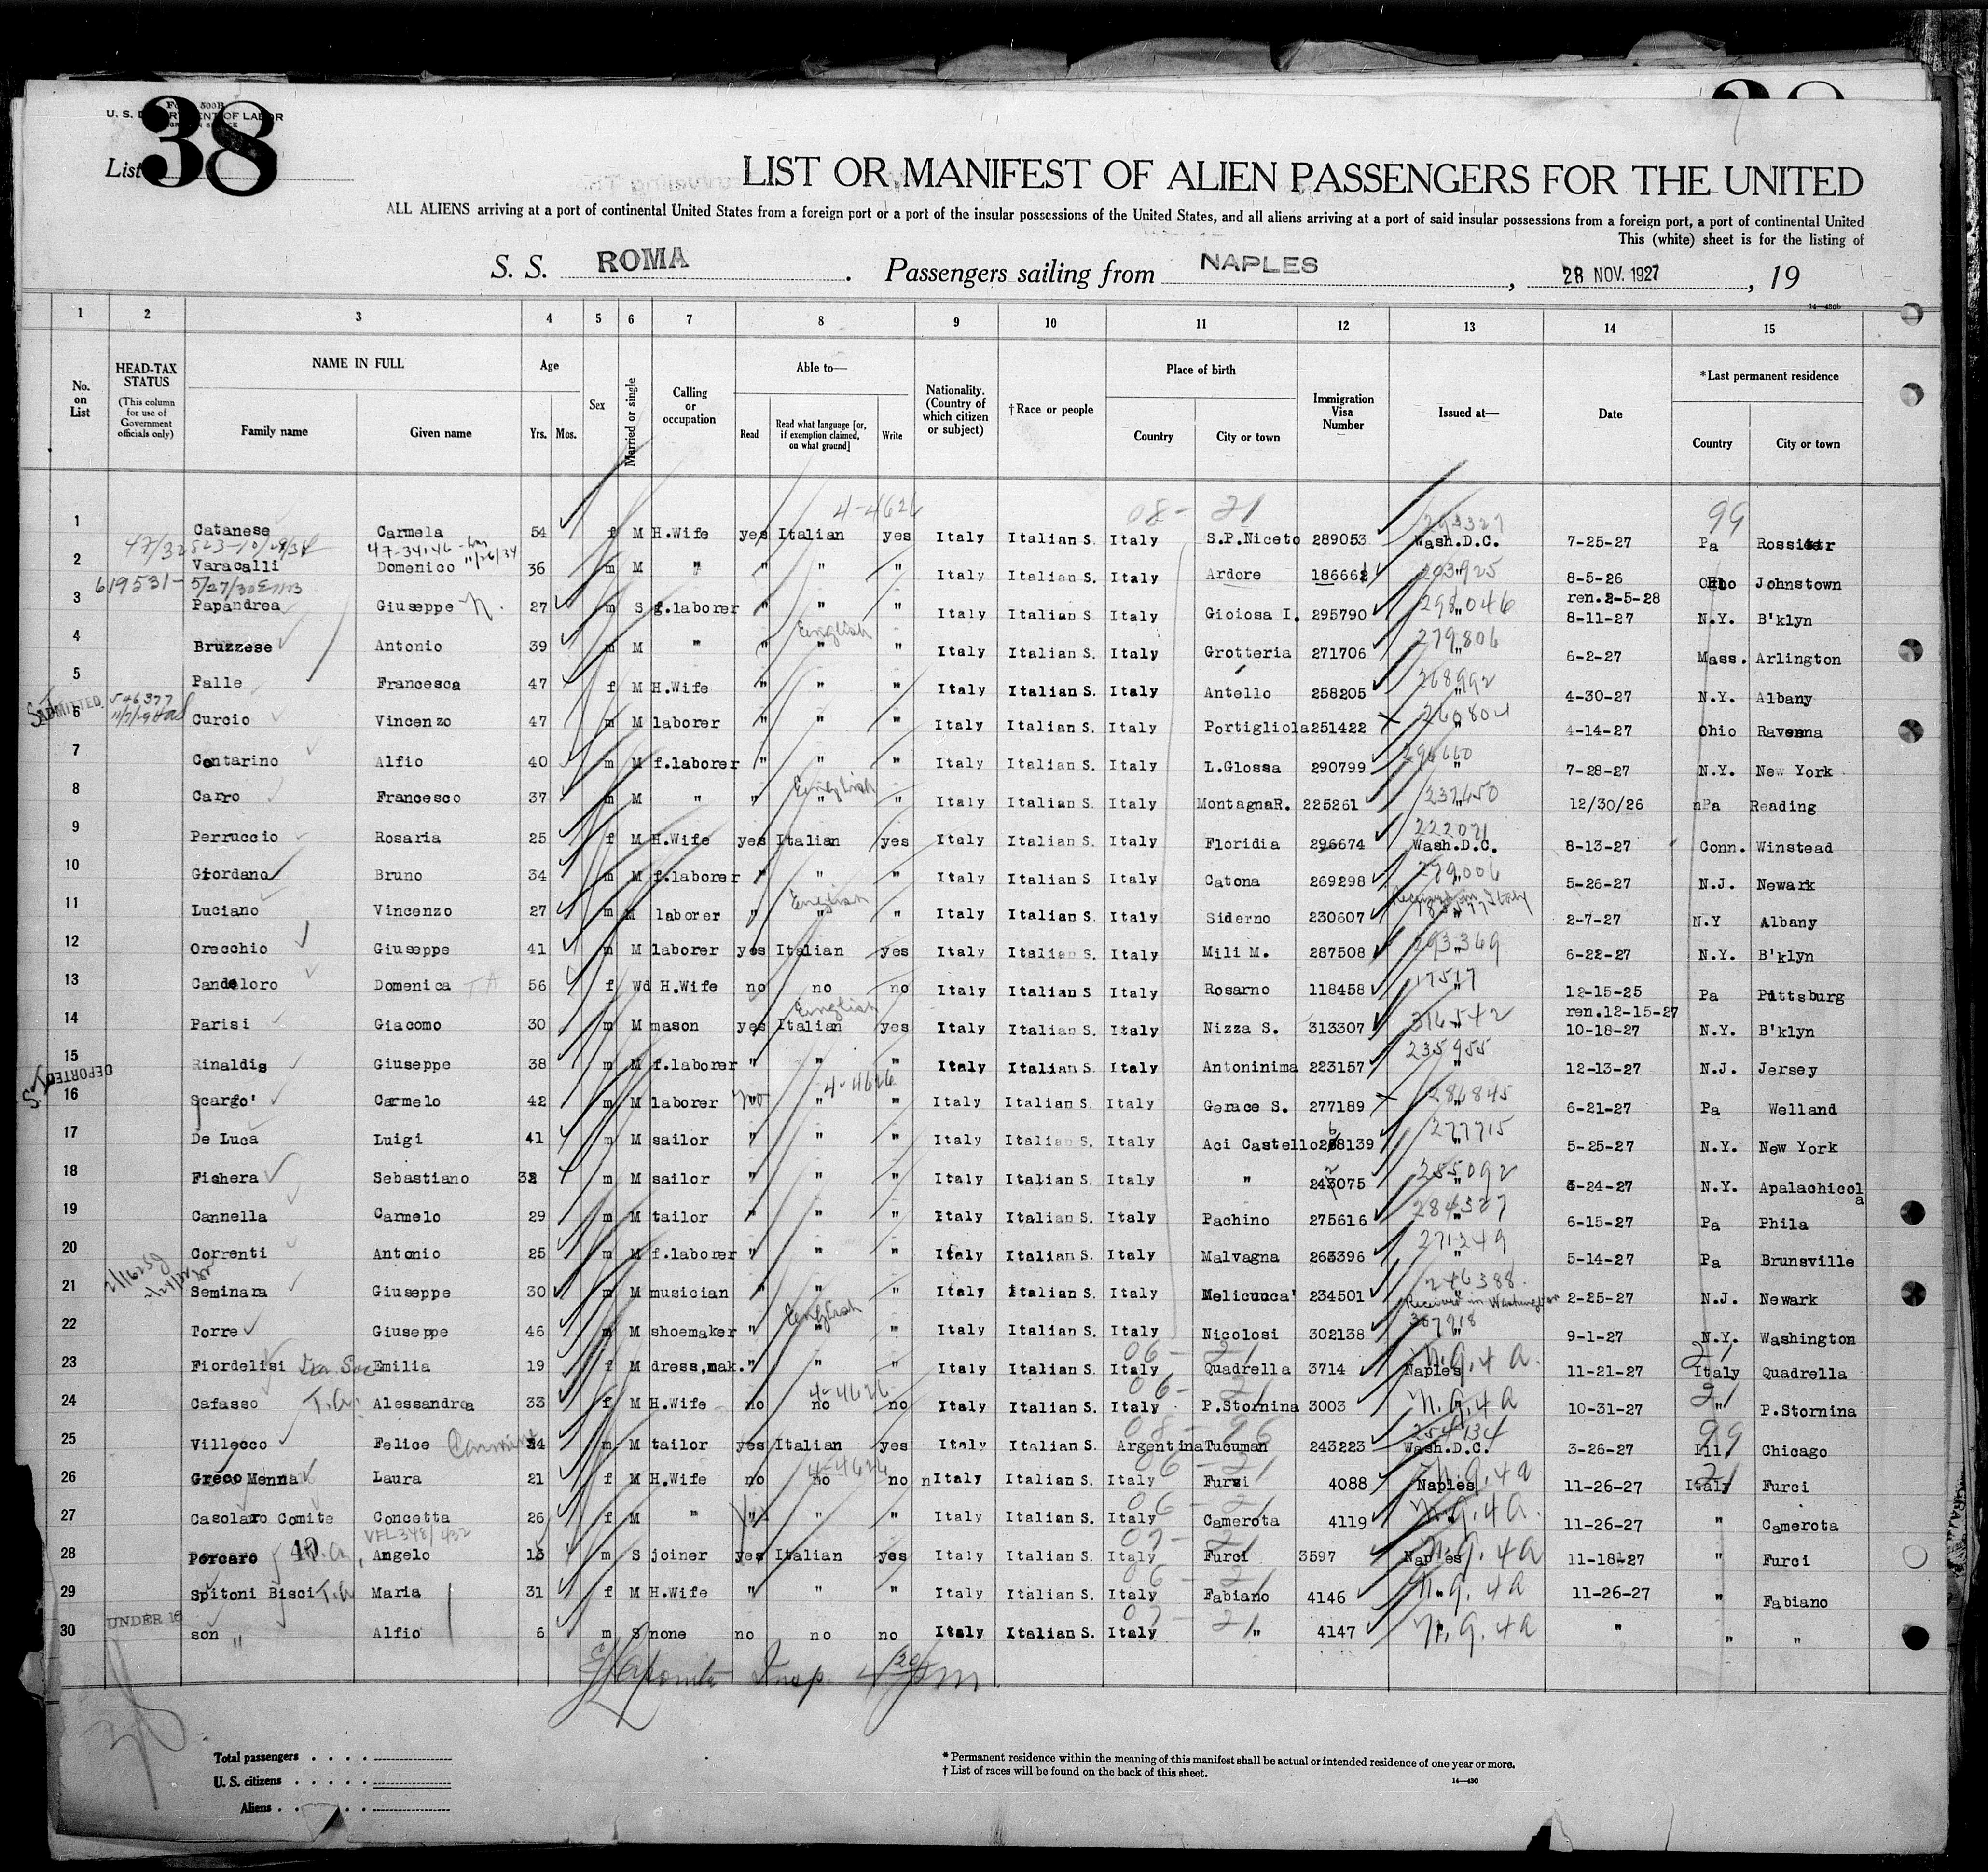 38
Form 500B
U. S. DEPARTMENT OF LABOR
List 38
LIST OR MANIFEST OF ALIEN PASSENGERS FOR THE UNITED
ALL ALIENS arriving at a port of continental United States from a foreign port or a port of the insular possessions of the United States, and all aliens arriving at a port of said insular possessions from a foreign port, a port of continental United
This (white) sheet is for the listing of
S. S. ROMA. Passengers sailing from NAPLES, 28 NOV. 1927, 19
14—430b
1 2 3 4 5 6 7 8 9 10 11 12 13 14 15
No. on List
HEAD-TAX STATUS
(This column for use of Government officials only)
NAME IN FULL
Family name Given name
Age
Yrs. Mos.
Sex
Married or single
Calling or occupation
Able to—
Read
Read what language [or, if exemption claimed, on what ground]
Write
Nationality. (Country of which citizen or subject)
†Race or people
Place of birth
Country City or town
Immigration Visa Number
Issued at—
Date
*Last permanent residence
Country City or town
4-4626 08- 21 293327 99
1 Catanese Carmela 54 f M H.Wife yes Italian yes Italy Italian S. Italy S.P.Niceto 289053 Wash.D.C. 7-25-27 Pa Rossiter
2 Varacalli Domenico 36 m M " " " " Italy Italian S. Italy Ardore 186662 203925 " 8-5-26 Ohio Johnstown
619531- 5/27/30 ren.2-5-28
3 Papandrea Giuseppe 27 m S f.laborer " " " Italy Italian S. Italy Gioiosa I. 295790 298046 " 8-11-27 N.Y. B'klyn
English
4 Bruzzese Antonio 39 m M " " " " Italy Italian S. Italy Grotteria 271706 279806 " 6-2-27 Mass. Arlington
5 Palle Francesca 47 f M H.Wife " " " Italy Italian S. Italy Antello 258205 268992 " 4-30-27 N.Y. Albany
ADMITTED 546377
6 Curcio Vincenzo 47 m M laborer " " " Italy Italian S. Italy Portigliola 251422 260804 " 4-14-27 Ohio Ravenna
7 Contarino Alfio 40 m M f.laborer " " " Italy Italian S. Italy L.Glossa 290799 296660 " 7-28-27 N.Y. New York
English
8 Carro Francesco 37 m M " " " " Italy Italian S. Italy MontagnaR. 225261 237650 " 12/30/26 Pa Reading
9 Perruccio Rosaria 25 f M H.Wife yes Italian yes Italy Italian S. Italy Floridia 296674 222071 Wash.D.C. 8-13-27 Conn. Winstead
10 Giordano Bruno 34 m M f.laborer " " " Italy Italian S Italy Catona 269298 279006 " 5-26-27 N.J. Newark
English Received in Italy
11 Luciano Vincenzo 27 m M laborer " " " Italy Italian S. Italy Siderno 230607 " 2-7-27 N.Y Albany
12 Orecchio Giuseppe 41 m M laborer yes Italian yes Italy Italian S. Italy Mili M. 287508 293369 " 6-22-27 N.Y. B'klyn
13 Candeloro Domenica 56 f Wd H.Wife no no no Italy Italian S Italy Rosarno 118458 117517 " 12-15-25 Pa Pittsburg
English ren.12-15-27
14 Parisi Giacomo 30 m M mason yes Italian yes Italy Italian S. Italy Nizza S. 313307 316542 " 10-18-27 N.Y. B'klyn
15 Rinaldis Giuseppe 38 m M f.laborer " " " Italy Italian S. Italy Antoninima 223157 235955 " 12-13-27 N.J. Jersey
DEPORTED 4-4626
16 Scarfo' Carmelo 42 m M laborer no " " Italy Italian S. Italy Gerace S. 277189 286845 " 6-21-27 Pa Welland
17 De Luca Luigi 41 m M sailor " " " Italy Italian S. Italy Aci Castello 268139 277715 " 5-25-27 N.Y. New York
18 Fichera Sebastiano 32 m M sailor " " " Italy Italian S. Italy " 242075 255092 " 3-24-27 N.Y. Apalachicola
19 Cannella Carmelo 29 m M tailor " " " Italy Italian S. Italy Pachino 275616 284527 " 6-15-27 Pa Phila
20 Correnti Antonio 25 m M f.laborer " " " Italy Italian S. Italy Malvagna 263396 271249 " 5-14-27 Pa Brunsville
21 Seminara Giuseppe 30 m M musician " " " Italy Italian S. Italy Melicucca' 234501 246388 " 2-25-27 N.J. Newark
English Received in Washington
22 Torre Giuseppe 46 m M shoemaker " " " Italy Italian S. Italy Nicolosi 302138 307918 " 9-1-27 N.Y. Washington
06- 21 21
23 Fiordelisi Emilia 19 f M dress,mak. " " " Italy Italian S. Italy Quadrella 3714 Naples N.Q.4a. 11-21-27 Italy Quadrella
4-4626 06- 21 21
24 Cafasso Alessandra 33 f M H.Wife no no no Italy Italian S. Italy P.Stornina 3003 N.Q.4a 10-31-27 " P.Stornina
08- 96 99
25 Villecco Felice 34 m M tailor yes Italian yes Italy Italian S. Argentina Tucuman 243223 254134 Wash.D.C. 3-26-27 Ill. Chicago
4-4626 06- 21 21
26 Greco Menna Laura 21 f M H.Wife no no no Italy Italian S. Italy Furci 4088 Naples N.Q.4a 11-26-27 Italy Furci
06- 21
27 Casolaro Comite Concetta 26 f M " " " " Italy Italian S. Italy Camerota 4119 " N.Q.4a. 11-26-27 " Camerota
VFL 348/432 07- 21
28 Porcaro Angelo 15 m S joiner yes Italian yes Italy Italian S. Italy Furci 3597 Naples N.Q.4a 11-18-27 " Furci
06- 21
29 Spitoni Bisci T.A Maria 31 f M H.Wife " " " Italy Italian S. Italy Fabiano 4146 " N.Q.4a 11-26-27 " Fabiano
UNDER 16 07- 21
30 son " Alfio 6 m S none no no no Italy Italian S. Italy " 4147 " N.Q.4a " " "
Insp.
Total passengers . . . .
U. S. citizens . . . . .
Aliens . . . . .
* Permanent residence within the meaning of this manifest shall be actual or intended residence of one year or more.
† List of races will be found on the back of this sheet.
14—430